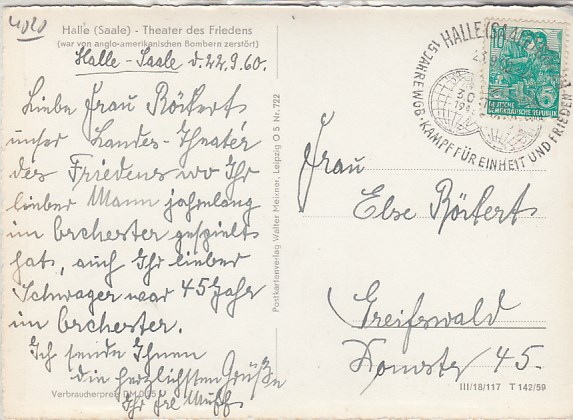 4020
Halle (Saale) - Theater des Friedens
(war von anglo-amerikanischen Bombern zerstört)
Halle-Saale d. 22.9.60.
Liebe Frau Röckert
unser Landes-Theater
des Friedens wo Ihr
lieber Mann jahrelang
im Orchester gespielt
hat, auch Ihr lieber
Schwager war 45 Jahr
im Orchester.
Ich sende Ihnen
die herzlichsten Grüße
Ihr
Verbraucherpreis DM
Postkartenverlag Walter Meixner, Leipzig O 5 Nr. 722
HALLE (SAALE)
15 JAHRE WGB · KAMPF FÜR EINHEIT UND FRIEDEN
10
5
DEUTSCHE
DEMOKRATISCHE REPUBLIK
Frau
Else Röckert
Greifswald
45.
III/18/117 T 142/59